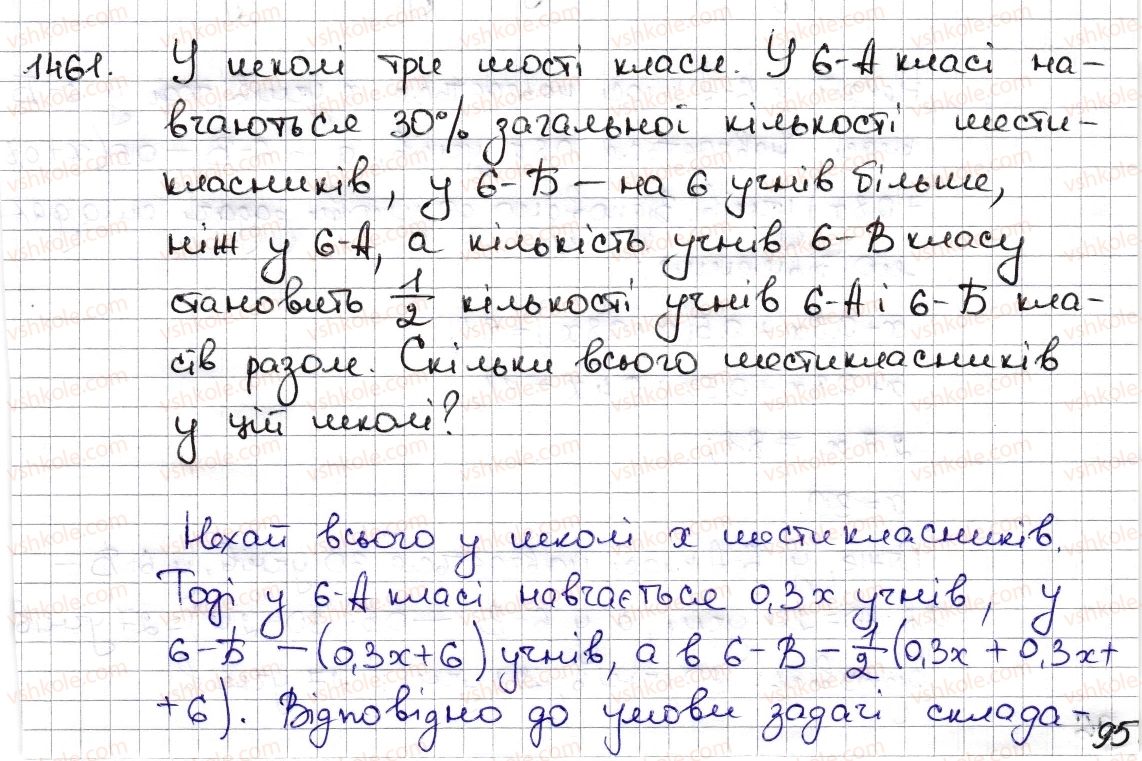 1461. У школі три шості класи. У 6-А класі на-
вчаються 30% загальної кількості шести-
класників, у 6-Б – на 6 учнів більше,
ніж у 6-А, а кількість учнів 6-В класу
становить 1/2 кількості учнів 6-А і 6-Б кла-
сів разом. Скільки всього шестикласників
у цій школі?
Нехай всього у школі x шестикласників.
Тоді у 6-А класі навчається 0,3x учнів, у
6-Б – (0,3x+6) учнів, а в 6-В – 1/2 (0,3x + 0,3x+
+6). Відповідно до умови задачі склада-
95
vshkole.com